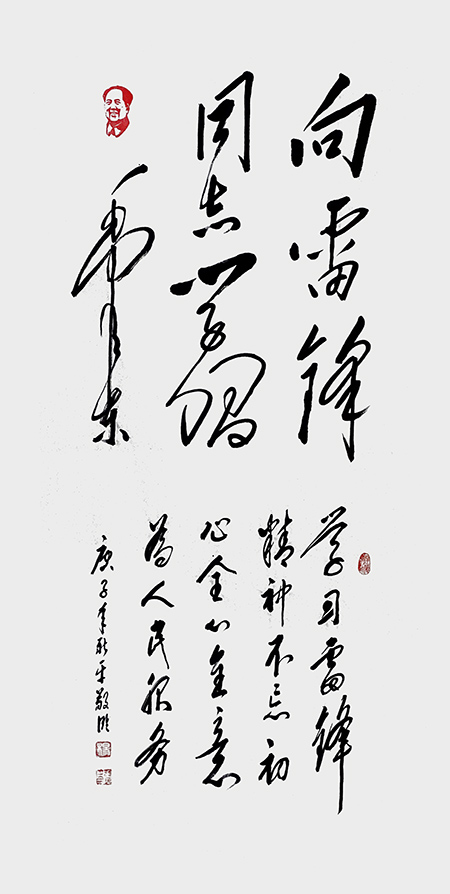 向雷锋
同志学习
毛泽东
学习雷锋
精神不忘初
心全心全意
为人民服务
庚子年